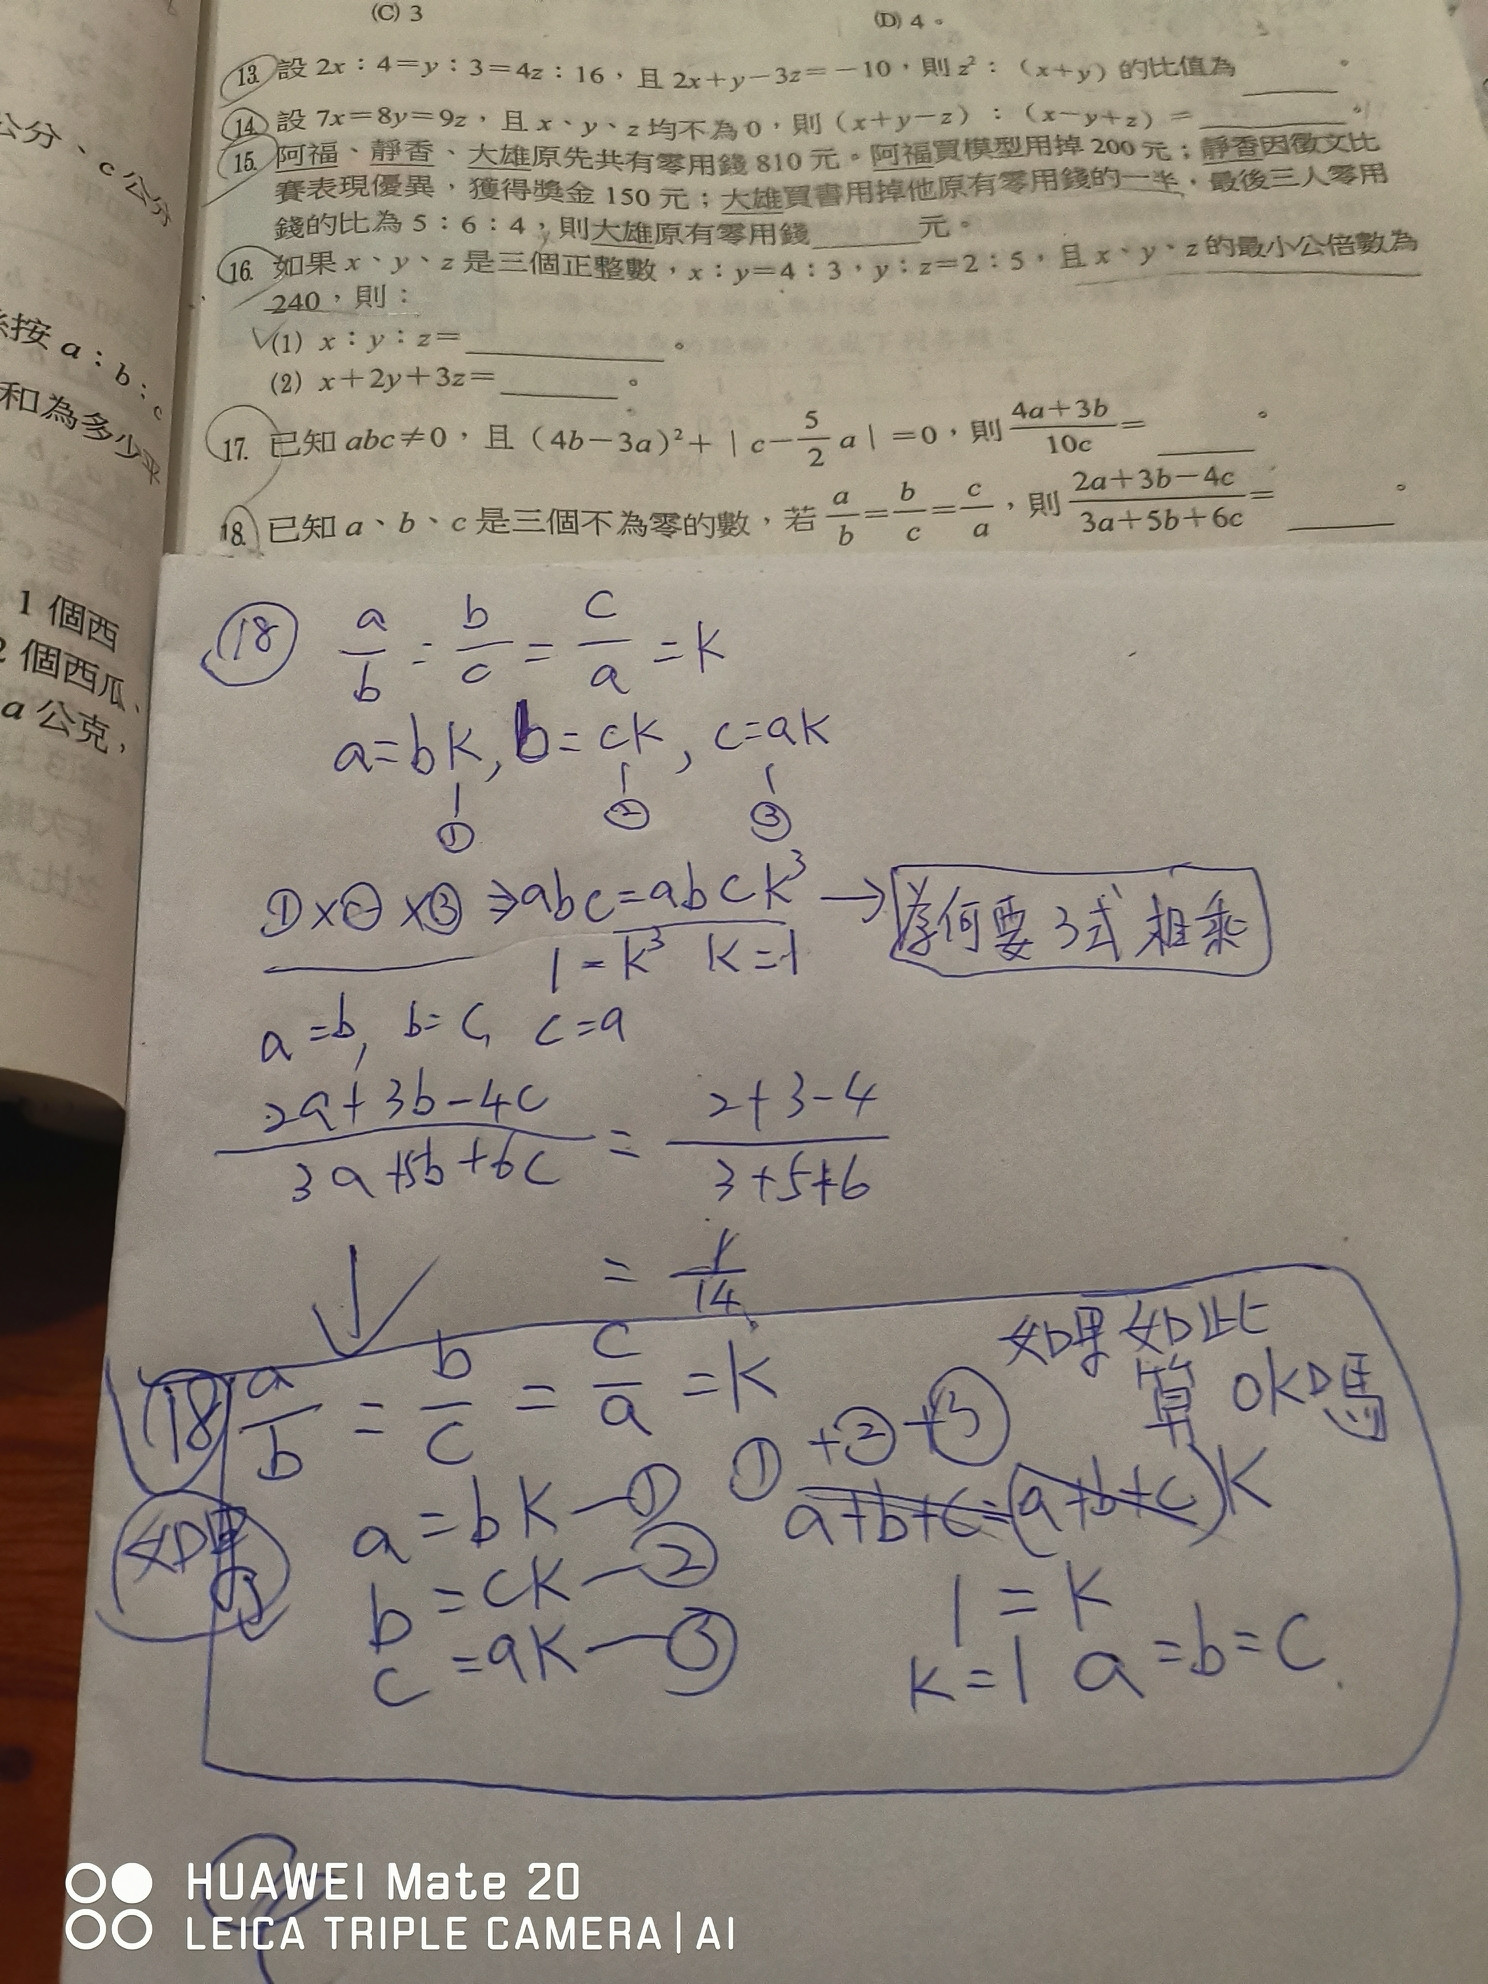 (C) 3 (D) 4。
13. 設 2x：4=y：3=4z：16，且 2x+y-3z=-10，則 z²：(x+y) 的比值為＿＿＿。
14. 設 7x=8y=9z，且 x、y、z 均不為 0，則 (x+y-z)：(x-y+z)=＿＿＿。
15. 阿福、靜香、大雄原先共有零用錢 810 元。阿福買模型用掉 200 元；靜香因徵文比
賽表現優異，獲得獎金 150 元；大雄買書用掉他原有零用錢的一半，最後三人零用
錢的比為 5：6：4，則大雄原有零用錢＿＿＿元。
16. 如果 x、y、z 是三個正整數，x：y=4：3，y：z=2：5，且 x、y、z 的最小公倍數為
240，則：
(1) x：y：z=＿＿＿。
(2) x+2y+3z=＿＿＿。
17. 已知 abc≠0，且 (4b-3a)²+|c-5/2 a|=0，則 (4a+3b)/10c=＿＿＿。
18. 已知 a、b、c 是三個不為零的數，若 a/b=b/c=c/a，則 (2a+3b-4c)/(3a+5b+6c)=＿＿＿。
公分、c 公分
按 a：b：c
和為多少平
1 個西
2 個西瓜、
a 公克，
⑱ a/b = b/c = c/a = K
a=bK, b=cK, c=aK
① ② ③
①×②×③ ⇒ abc=abcK³ → 為何要3式相乘
1=K³ K=1
a=b, b=c, c=a
(2a+3b-4c)/(3a+5b+6c) = (2+3-4)/(3+5+6)
= 1/14
如果如此
算 OK嗎
⑱ a/b = b/c = c/a = K
①+②+③
如果
a=bK—① a+b+c=(a+b+c)K
b=cK—② 1=K
c=aK—③ K=1 a=b=c
HUAWEI Mate 20
LEICA TRIPLE CAMERA | AI